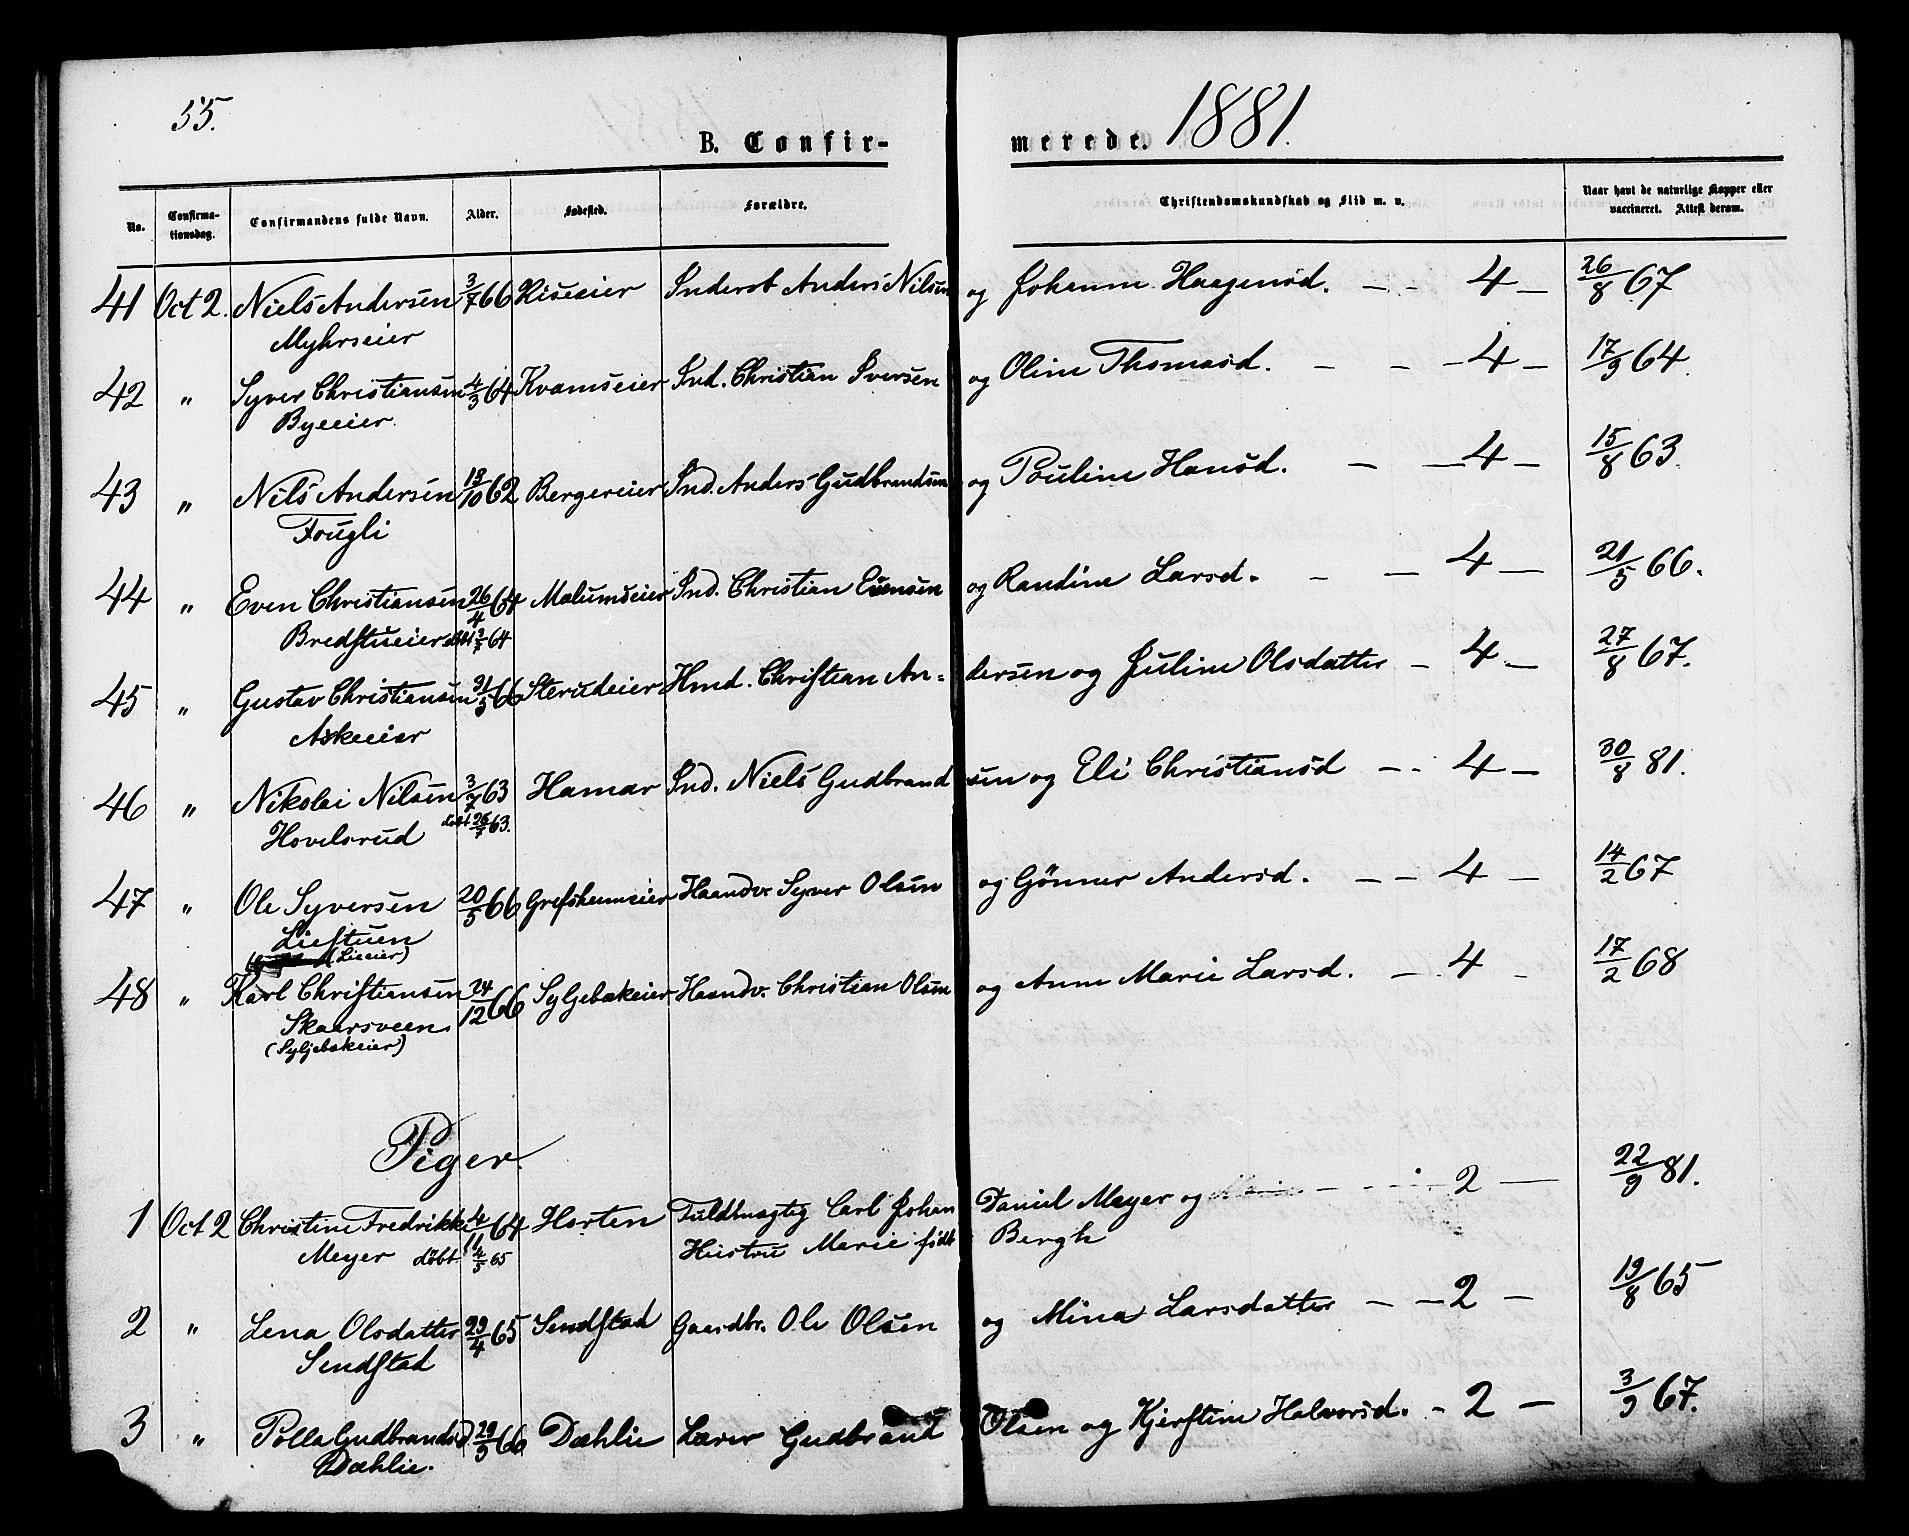 55.
B. Confir- merede. 1881.
No. Confirma-tionsdag. Confirmandens fulde Navn. Alder. Fødested. Forældre. Christendomskundskab og Flid m. v. Naar havt de naturlige Kopper eller vaccineret. Attest derom.
41 Oct 2. Niels Andersen 3/7 66 Riseeier Inderst Anders Nilsen og Johanne Haagensd. - - 4 - 26/8 67
Myhrseier
42 " Syver Christiansen 4/3 64 Kvamseier Ind. Christian Iversen og Oline Thomasd. - - - 4 - 17/9 64.
Byeeier.
43 " Nils Andersen 13/10 62 Bergereier Ind. Anders Gudbrandsen og Pouline Hansd. - - 4 - 15/8 63.
Fougli
44 " Even Christiansen 26/4 64 Malumseier Ind. Christian Evensen og Randine Larsd. - - 4 - 21/5 66.
Bredstueier døbt 3/7 64
45 " Gustav Christiansen 31/5 66 Sterudeier Hmd. Christian An- dersen og Juline Olsdatter - 4 - 27/8 67.
Askeeier
46 " Nikolai Nilsen 3/7 63 Hamar Ind. Niels Gudbrand sen og Eli Christiansd - - 4 - 30/8 81.
Hovelsrud døbt 26/7 63.
47 " Ole Syversen 20/5 66 Grefsheimeier Haandv. Syver Olsen og Gønner Andersd. - - 4 - 14/2 67
Liestuen
(Lieeier)
48 " Karl Christiansen 24/12 66 Syljebækeier Haandv. Christian Olsen og Anne Marie Larsd. - 4 - 17/2 68
Skaarsveen.
(Syljebækeier)
Piger.
1 Oct 2 Christine Fredrikke 4/11 64 Horten Fuldmægtig Carl Johan Daniel Meyer og - - - 2 - 22/9 81.
Meyer døbt 4/5 65 Hustru Marie født Bergh
2 " Lena Olsdatter 29/4 65 Sendstad Gaardbr. Ole Olsen og Mina Larsdatter - - 2 - 19/8 65
Sendstad
3 " Polla Gudbrandsd 29/9 66 Dæhlie Lærer Gudbrand Olsen og Kjerstine Halvorsd. - 2 - 3/9 67.
Dæhlie.